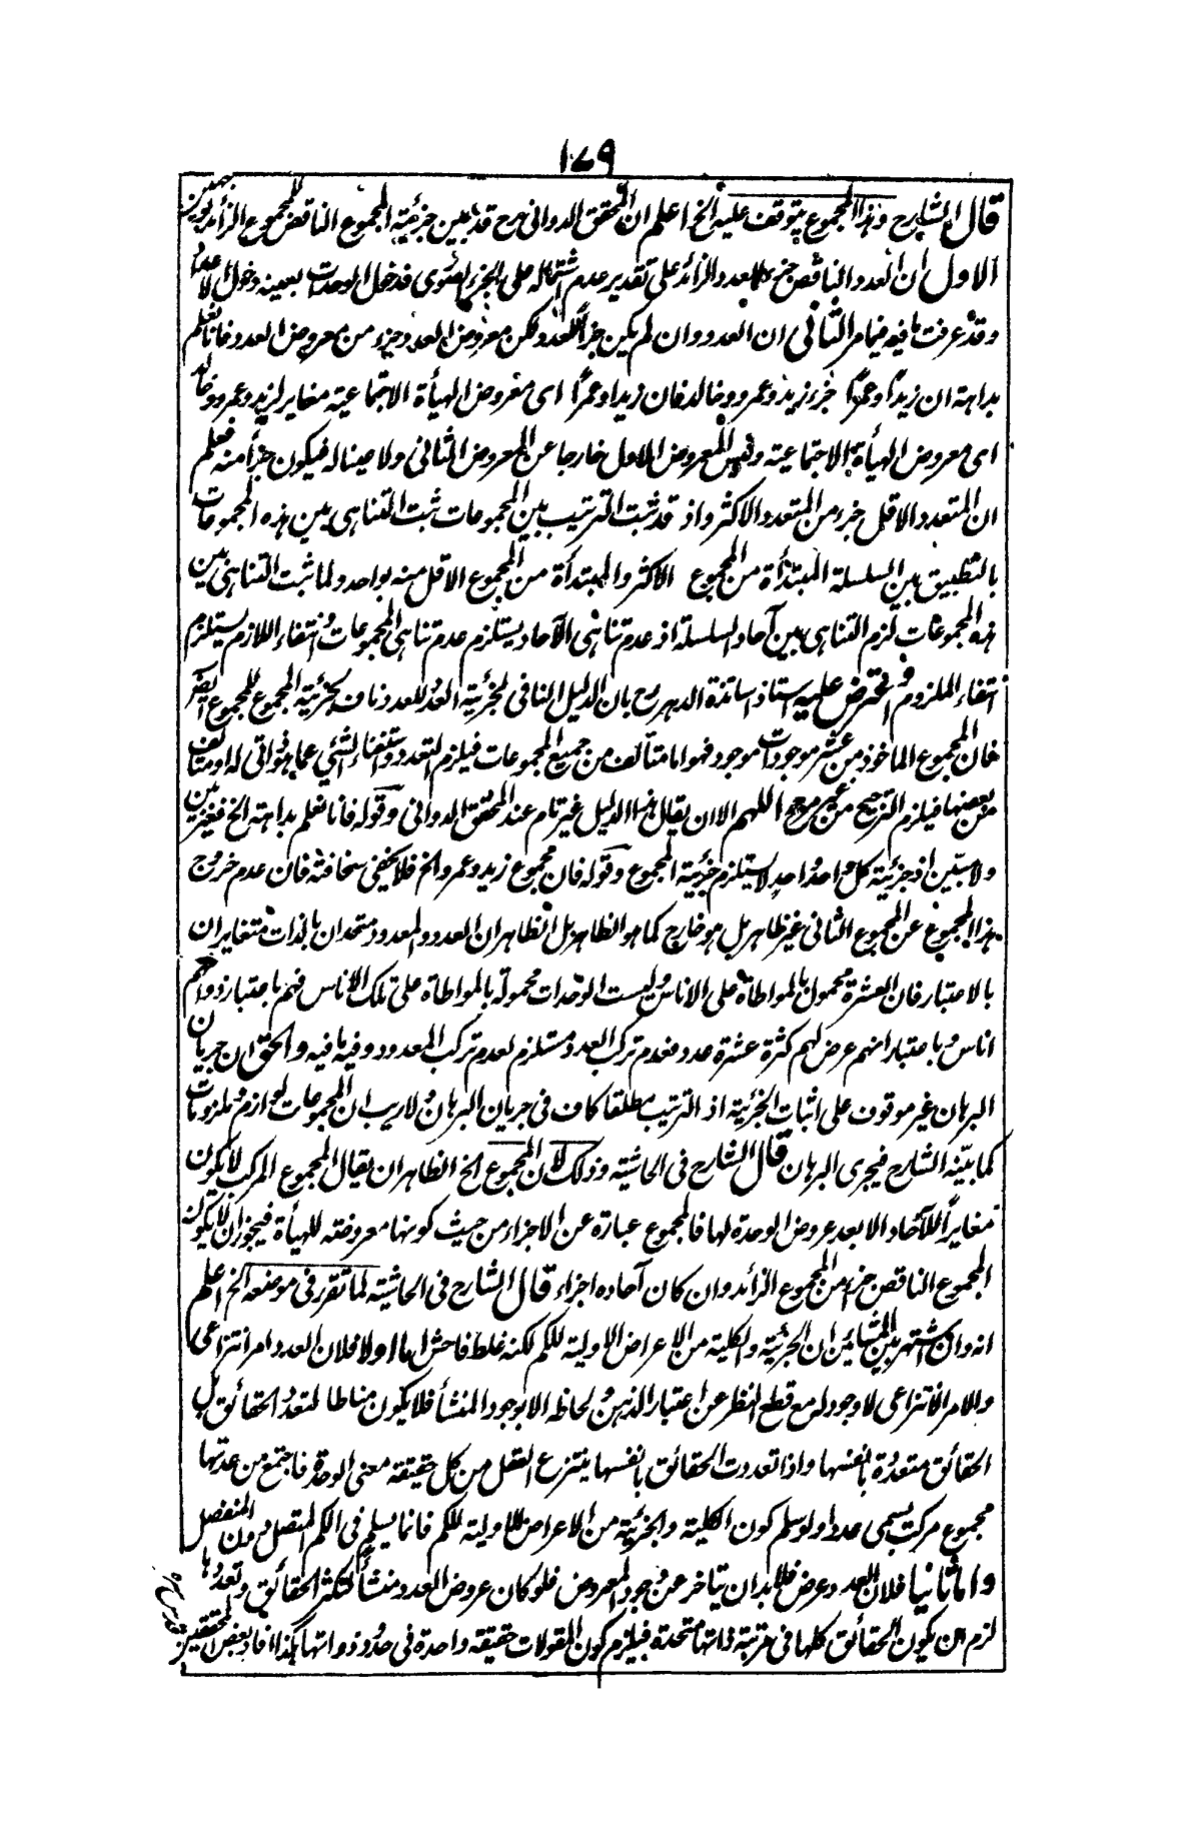 ١٧٩
قال الشارح وهذا المجموع يتوقف عليه الخ اعلم ان المحقق الدواني رح قد بين جزئية المجموع الناقص للمجموع الزائد بوجهين
الاول ان العدد الناقص جزء للعدد الزائد على تقدير عدم اشتماله على الجزء الصوري فدخول الوحدات بعينه دخول الاعداد
وقد عرفت ما فيه فيما مر الثاني ان العدد وان لم يكن جزأ للعدد ولكن معروض العدد جزء من معروض العدد فانا نعلم
بداهة ان زيدا وعمرًا جزء زيد وعمرو وخالد فان زيدا وعمرًا اى معروض الهيأة الاجتماعية مغاير لزيد وعمرو وخالد
اى معروض الهيأة الاجتماعية وليس المعروض الاول خارجا عن المعروض الثاني ولا عينا له فيكون جزأ منه فعلم
ان المتعدد الاقل جزء من المتعدد الاكثر واذ قد ثبت الترتيب بين المجموعات ثبت التناهى بين هذه المجموعات
بالتطبيق بين السلسلة المبتدأة من المجموع الاكثر والمبتدأة من المجموع الاقل منه بواحد ولما ثبت التناهى بين
هذه المجموعات لزم التناهى بين آحاد السلسلة اذ عدم تناهى الآحاد يستلزم عدم تناهى المجموعات وانتفاء اللازم يستلزم
انتفاء الملزوم واعترض عليه استاذ اساتذة الدهر رح بان الدليل النافي لجزئية العدد للعدد ناف لجزئية المجموع للمجموع ايضا
فان المجموع الماخوذ من عشر موجودات موجود فهو اما متألف من جميع المجموعات فيلزم التعدد واستغناء الشئ عما هو ذاتى له او متألف
من بعضها فيلزم الترجيح من غير مرجح اللهم الا ان يقال هذا الدليل غير تام عند المحقق الدواني وقوله فانا نعلم بداهة الخ فغير بين
ولا مبين اذ جزئية كل واحد واحد لا يستلزم جزئية المجموع وقوله فان مجموع زيد وعمرو الخ فلا يخفى سخافته فان عدم خروج
هذا المجموع عن المجموع الثاني غير ظاهر بل هو خارج كما هو الظاهر بل الظاهر ان العدد والمعدود متحدان بالذات متغايران
بالاعتبار فان العشرة محمول بالمواطاة على الاناس وليست الوحدات محمولة بالمواطاة على تلك الاناس فهم باعتبار ذواتهم
اناس وباعتبار انهم عرض لهم كثرة عشرة عدد فعدم تركب العدد مستلزم لعدم تركب المعدود وفيه ما فيه والحق ان جريان
البرهان غير موقوف على اثبات الجزئية اذ الترتيب مطلقا كاف في جريان البرهان ولا ريب ان المجموعات لوازم وملزومات
كما بينه الشارح فيجرى البرهان قال الشارح في الحاشية وذلك لان المجموع الخ الظاهر ان يقال المجموع المركب لا يكون
مغايرًا للآحاد الا بعد عروض الوحدة لها فالمجموع عبارة عن الاجزاء من حيث كونها معروضة للهيأة فيجوز ان لا يكون
المجموع الناقص جزء من المجموع الزائد وان كان آحاده اجزاء قال الشارح في الحاشية لما تقرر في موضعه الخ اعلم
انه وان اشتهر بين المشائين ان الجزئية والكلية من الاعراض الاولية للكم لكنه غلط فاحش اما اولا فلان العدد امر انتزاعى
والامر الانتزاعى لا وجود له مع قطع النظر عن اعتبار الذهن ولحاظه الا بوجود المنشأ فلا يكون مناطا لتعدد الحقائق بل
الحقائق متعددة بانفسها واذا تعددت الحقائق بانفسها ينتزع العقل من كل حقيقة معنى الوحدة فاجتمع من عدتها
مجموع مركب يسمى عددا ولو سلم كون الكلية والجزئية من الاعراض الاولية للكم فانما يسلم في الكم المتصل دون المنفصل
واما ثانيا فلان العدد عرض فلا بد ان يتاخر عن وجود المعروض فلو كان عروض العدد منشأ لتكثر الحقائق وتعددها
لزم ان يكون الحقائق كلها في مرتبة ذاتها متحدة فيلزم كون المقولات حقيقة واحدة في حدود ذواتها هكذا افاد بعض المحققين